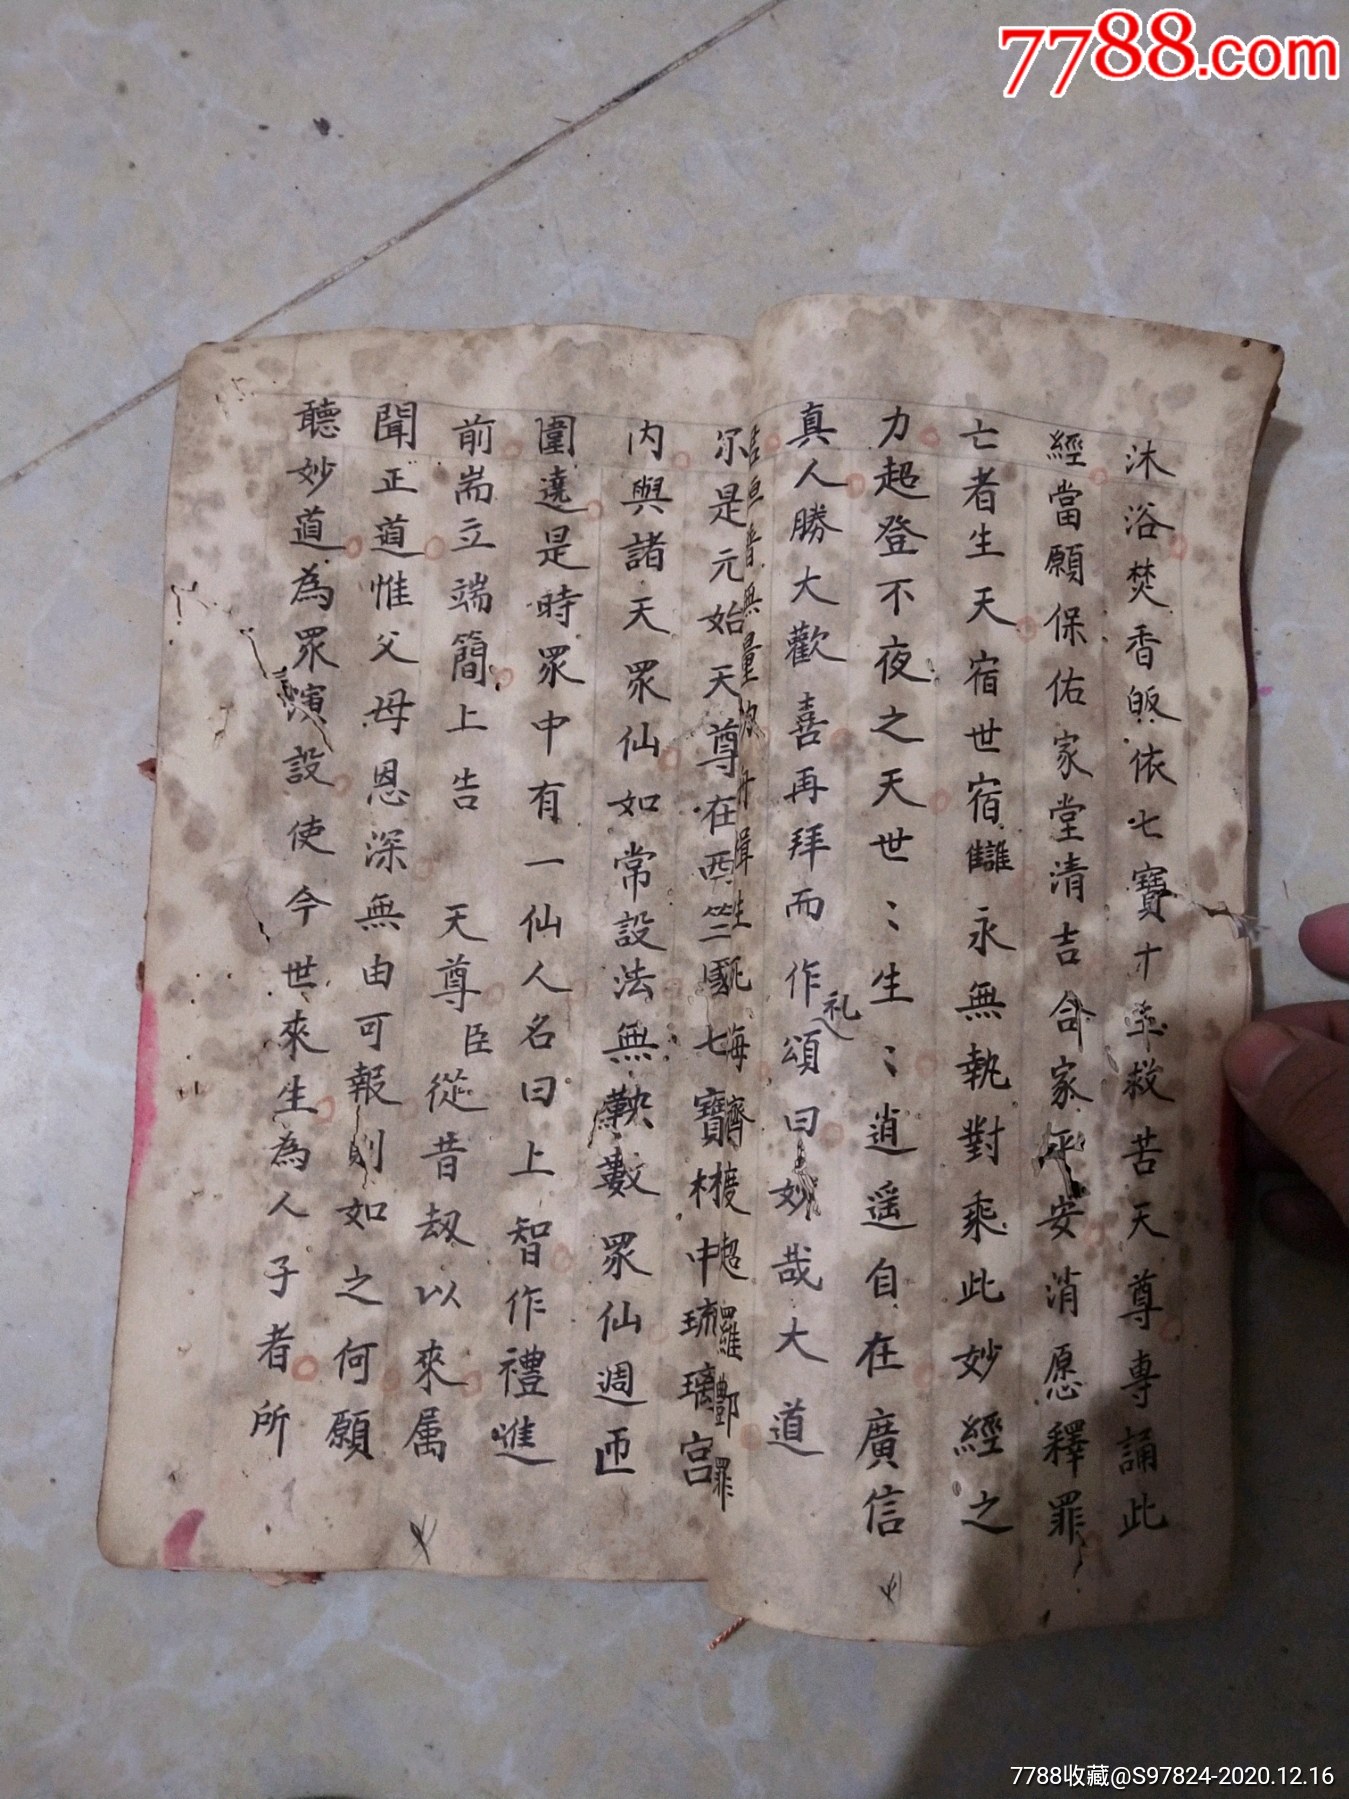 7788.com
沐浴焚香皈依七寶十率救苦天尊專誦此
經當願保佑家堂清吉合家平安消愿釋罪
亡者生天宿世宿讎永無執對乘此妙經之
力超登不夜之天世〻生〻逍遥自在廣信
真人勝大歡喜再拜而作礼頌曰妙哉大道
無量 超羅酆罪
尔是元始天尊在西竺國七寶林中琉璃宫
内與諸天眾仙如常設法無鞅數眾仙週匝
圍遶是時眾中有一仙人名曰上智作禮進
前耑立端簡上告 天尊臣從昔劫以來属
聞正道惟父母恩深無由可報則如之何願
聽妙道為眾演設使今世來生為人子者所
7788收藏@S97824-2020.12.16